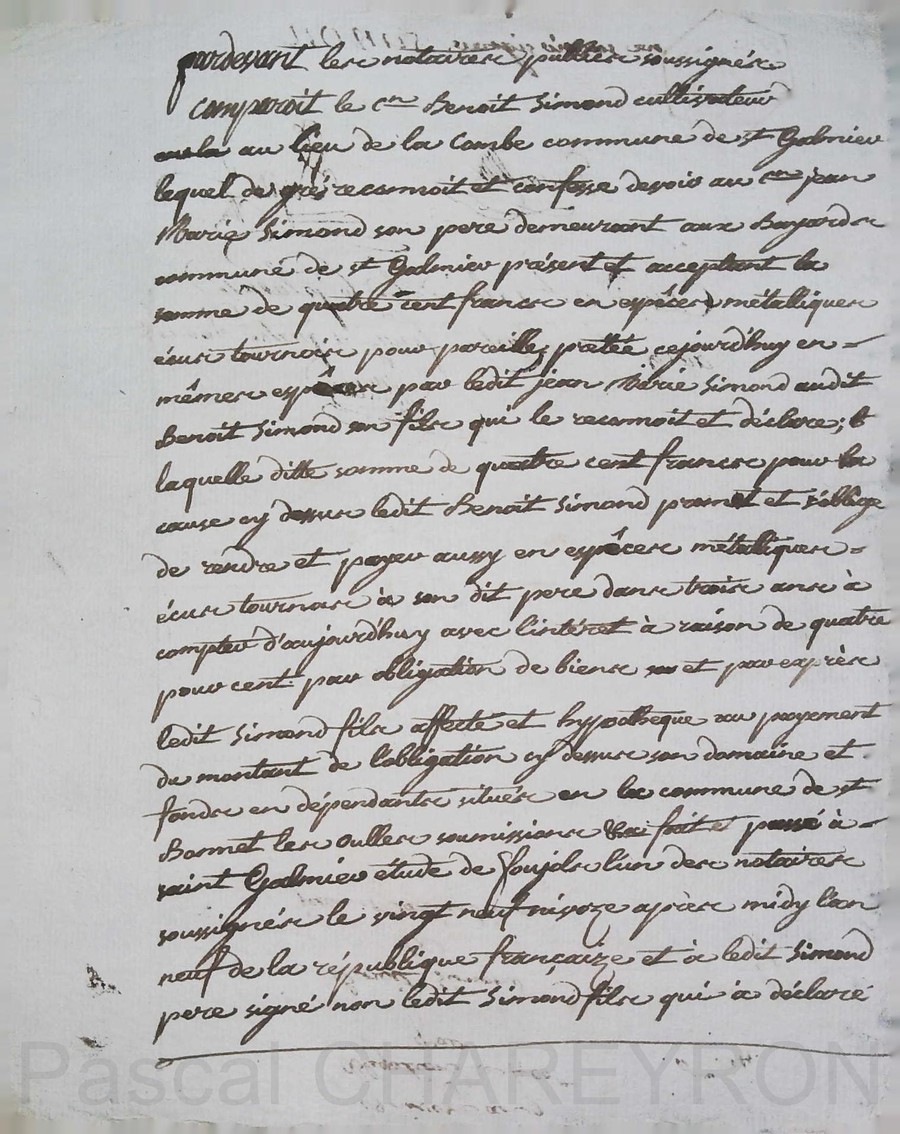 pardevant les notaires publics soussignés
comparoit le cen Benoit Simond cultivateur
au lieu de la Combe commune de st Galmier
lequel de gré reconnoit et confesse devoir au cen jean
Marie Simond son pere demeurant aux Bayards
commune de st Galmier présent et acceptant la
somme de quatre cent francs en espêces métalliques
écus tournois pour pareille prêtée cejourd'huy en=
mêmes espêces par ledit jean Marie Simond audit
Benoit Simond son fils qui le reconnoit et déclare;
laquelle ditte somme de quatre cent francs pour la
cause cy dessus ledit Benoit Simond promet et s'oblige
de rendre et payer aussy en espêces métalliques=
écus tournois à son dit pere dans trois ans à
compter d'aujourdhuy avec l'intéret à raison de quatre
pour cent par obligation de biens et par exprès
ledit Simond fils affecte et hypothèque au payement
du montant de l'obligation cy dessus son domaine et
fonds en dépendants situés en la commune de st
Bonnet les oulles soumissions fait et passé à=
saint Galmier étude de foujols l'un des notaires
soussignés le vingt neuf nivoze après midy l'an
neuf de la république françaize et à ledit Simond
pere signé non ledit Simond fils qui à déclaré
Pascal CHAREYRON